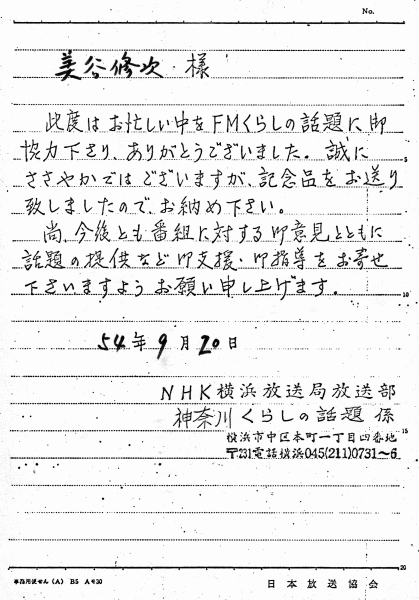 No.
美谷修次 様
此度はお忙しい中をFMくらしの話題に御
協力下さり、ありがとうございました。誠に
ささやかではございますが、記念品をお送り
致しましたので、お納め下さい。
尚、今後とも番組に対する御意見とともに
話題の提供など御支援・御指導をお寄せ
下さいますようお願い申し上げます。
54年9月20日
NHK横浜放送局放送部
神奈川くらしの話題 係
横浜市中区本町一丁目四番地
〒231電話横浜045(211)0731〜6
5
10
15
20
事務用便せん(A) B5 A判30
日本放送協会